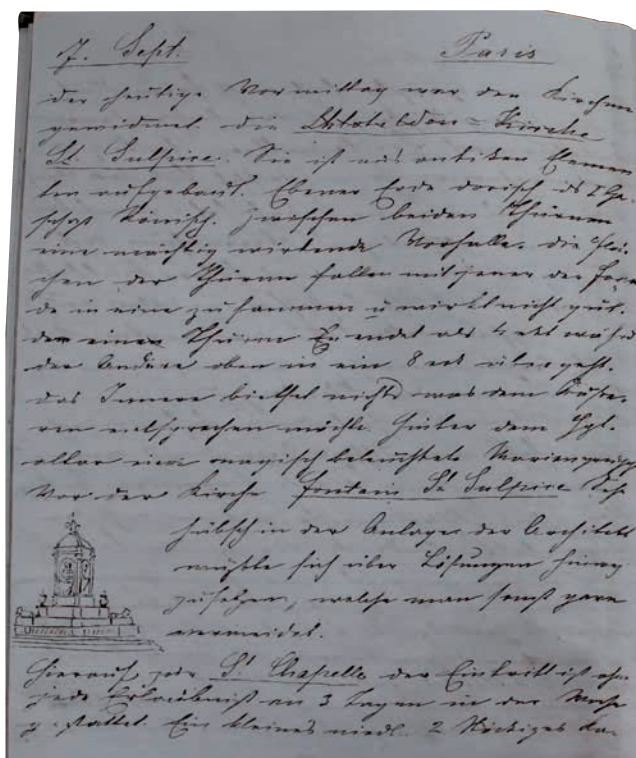 7. Sept. Paris
der heutige Vormittag war den Kirchen
gewidmet. die Kirche
St. Sulpice. Sie ist aus antiken Elemen
ten aufgebaut. Ebener Erde dorisch ds I Ge-
schoß Jonisch. zwischen beiden Thürmen
eine mächtig wirkende Vorhalle. die Flä-
chen der Thürme fallen mit jener der Faca
de in eine zusammen u wirkt nicht gut.
der eine Thurm endet als 4 eck währd
der Andere oben in ein 8 eck übergeht.
das Innere biethet nichts was dem Äuße-
ren entsprechen möchte. hinter dem Hpt.
altar eine magisch beleuchtete Mariengruppe
Vor der Kirche Fontain St Sulpice Sehr
hübsch in der Anlage. der Architekt
mußte sich über Lösungen hinweg
zusetzen, welche man sonst gern
vermeidet.
Hierauf zur St Chapelle der Eintritt ist ohne
jede Erlaubniß an 3 Tagen in der Woche
gestattet. Ein kleines niedl. 2 Stöckiges